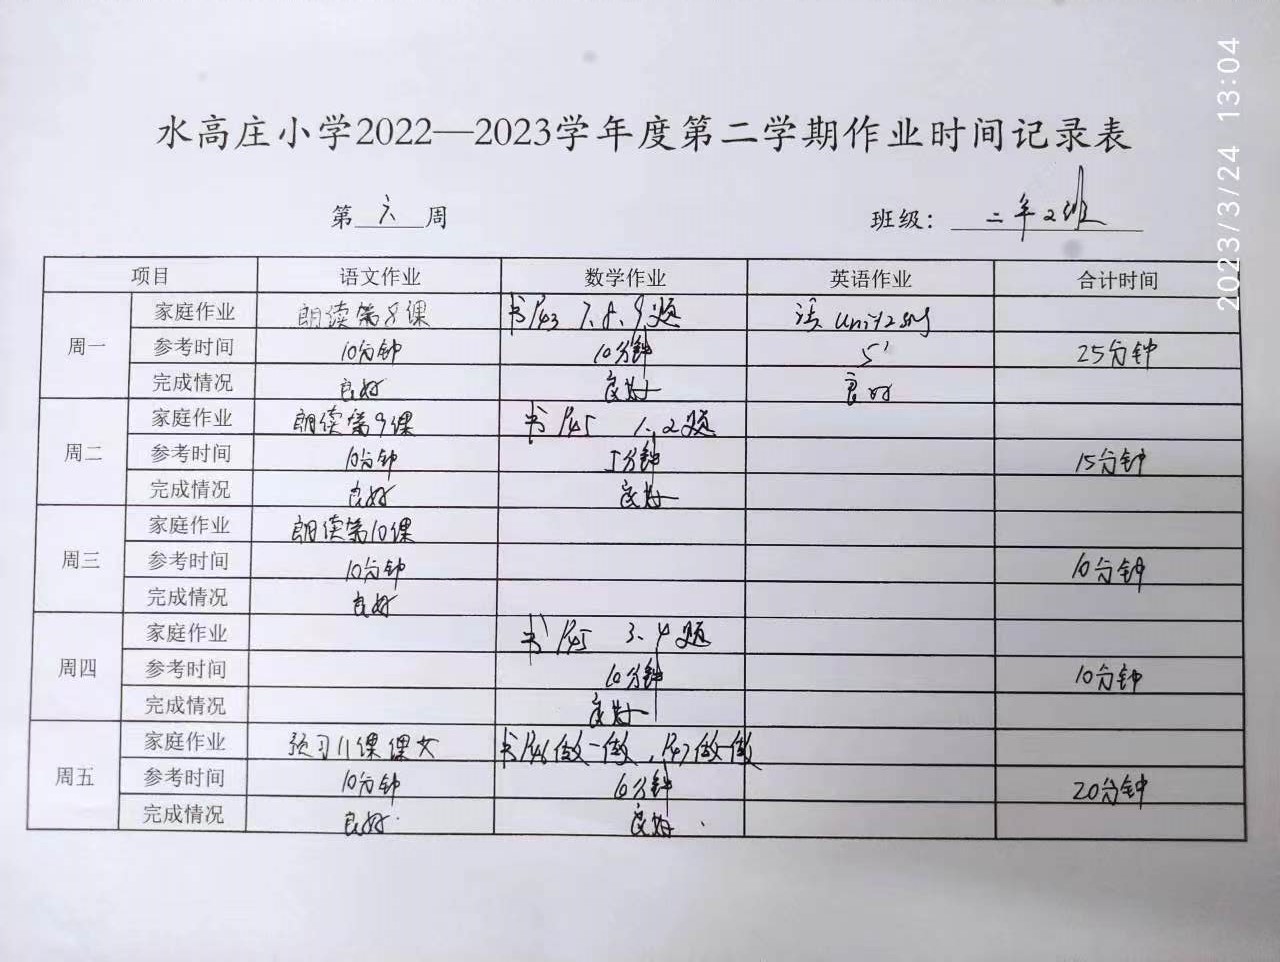 水高庄小学2022—2023学年度第二学期作业时间记录表
第六周 班级：二年2班
项目 语文作业 数学作业 英语作业 合计时间
周一
家庭作业 朗读第8课 书P43 7、8、9题 读 Unit2
参考时间 10分钟 10分钟 5' 25分钟
完成情况 良好 良好 良好
周二
家庭作业 朗读第9课 书P45 1、2题
参考时间 10分钟 5分钟 15分钟
完成情况 良好 良好
周三
家庭作业 朗读第10课
参考时间 10分钟 10分钟
完成情况 良好
周四
家庭作业 书P45 3、4题
参考时间 10分钟 10分钟
完成情况 良好
周五
家庭作业 预习11课课文 书P46做一做，P47做一做
参考时间 10分钟 10分钟 20分钟
完成情况 良好 良好
2023/3/24 13:04